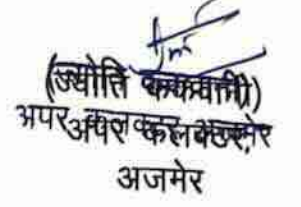 (ज्योति ककवानी)
अपर कलक्टर,
अजमेर